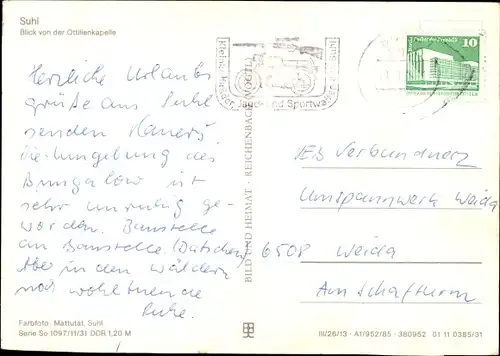 Suhl
Blick von der Ottilienkapelle
Herzliche Urlaubs
grüße aus Suhl
senden
Die Umgebung des
Bungalow ist
sehr unruhig ge-
worden. Baustelle
an Baustelle (Datschen)
Aber in den Wäldern
noch wohltuende
Ruhe.
Farbfoto: Mattutat, Suhl
Serie So 1097/11/31 DDR 1,20 M
BILD UND HEIMAT · REICHENBACH (VOGTL)
Jagd- und Sportwaffen aus Suhl
10
VEB Verbundnetz
Umspannwerk Weida
6508 Weida
Am Schafturm
III/26/13 · A1/952/85 · 380952 01 11 0385/31